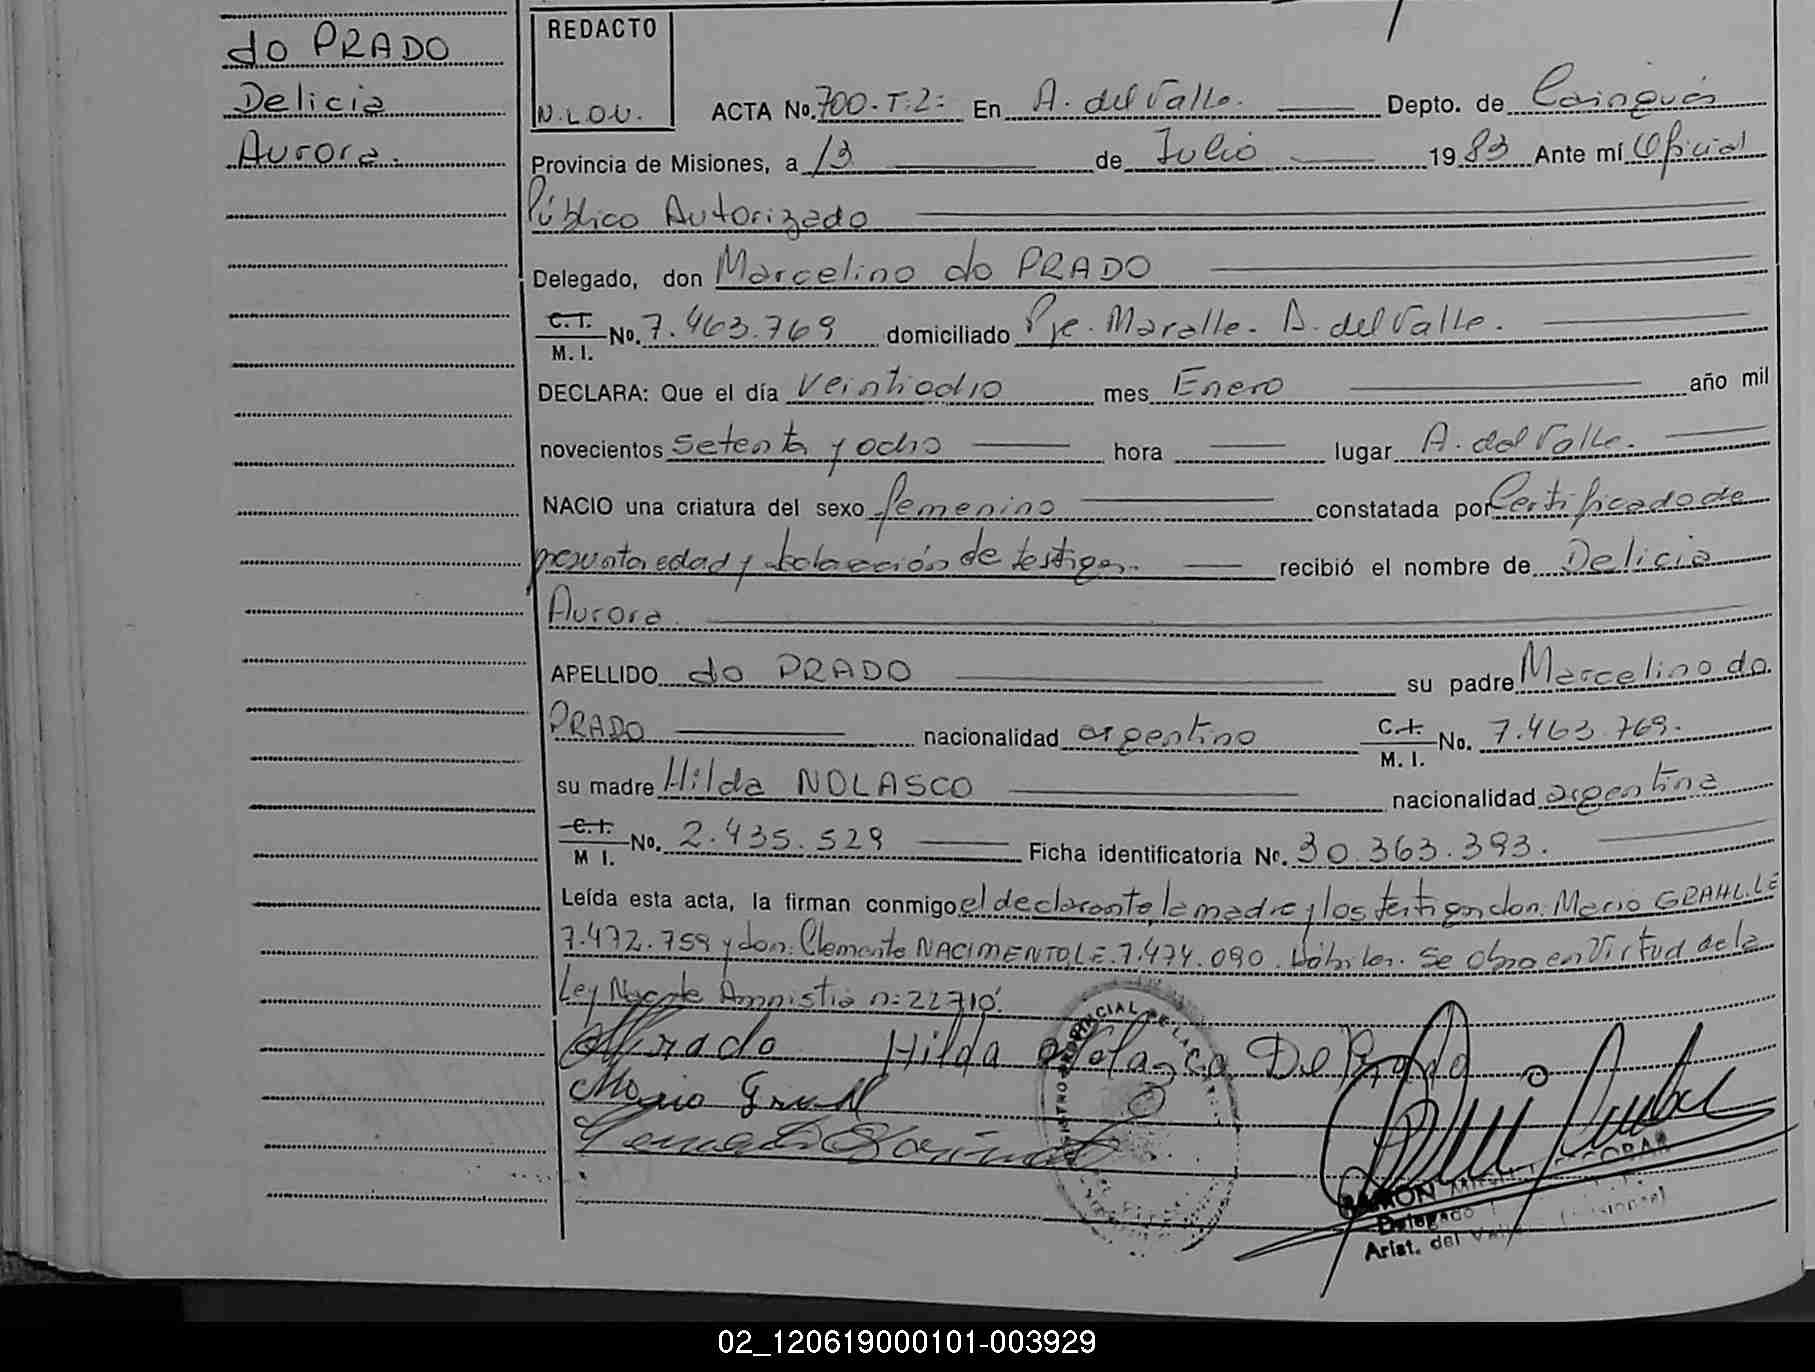 do PRADO
Delicia
Aurora.
REDACTO
N.L.O.U.
ACTA No. 700-T.2: En A. del Valle. Depto. de Cainguás
Provincia de Misiones, a 13 de Julio 1983 Ante mí Oficial
Público Autorizado
Delegado, don Marcelino do PRADO
C.I. M. I. No. 7.463.769 domiciliado Pje. Maralle. A. del Valle.
DECLARA: Que el día Veintiocho mes Enero año mil
novecientos setenta y ocho hora lugar A. del Valle.
NACIO una criatura del sexo femenino constatada por Certificado de
presunta edad y declaración de testigos. recibió el nombre de Delicia
Aurora.
APELLIDO do PRADO su padre Marcelino do
PRADO nacionalidad argentino C.I. M. I. No. 7.463.769.
su madre Hilda NOLASCO nacionalidad argentina
C.I. M I. No. 2.435.529 Ficha identificatoria No. 30.363.393.
Leída esta acta, la firman conmigo el declarante, la madre y los testigos don: Mario GRAHL. LE
7.472.759 y don: Clemente NACIMENTO, LE. 7.474.090. Hábiles. Se obra en Virtud de la
Ley Nac. de Amnistia n: 22710.
Prado Hilda Nolazco De Prado
Mario Grahl
REGISTRO PROVINCIAL DE LAS
RAMON ESCOBAR
Delegado
Arist. del Valle (Misiones)
02_120619000101-003929